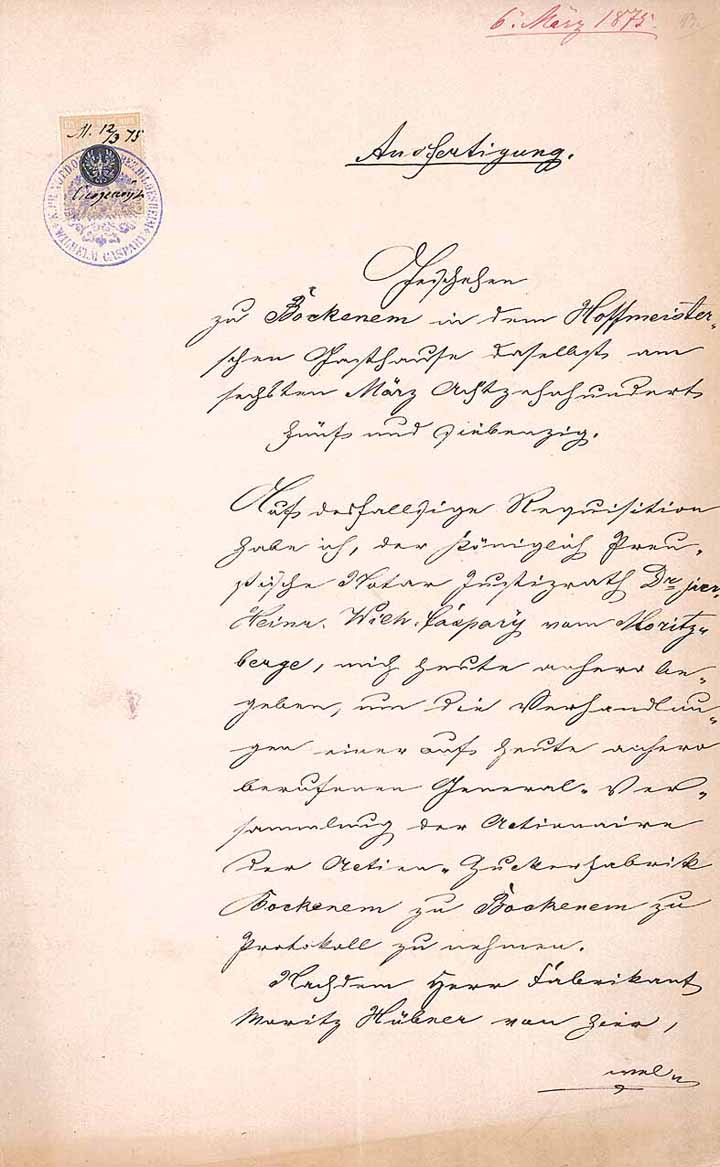 6. März 1875.
M. 12/3 75
WILHELM CASPARY
Ausfertigung.
Geschehen
zu Bockenem in dem Hoffmeister-
schen Gasthause daselbst am
sechsten März Achtzehnhundert
fünf und siebenzig.
Auf desfallsige Requisition
habe ich, der Königlich Preu-
ßische Notar Justizrath Dr jur.
Heinr. Wilh. Caspary vom Moritz-
berge, mich heute anhero be-
geben, um die Verhandlun-
gen einer auf heute anhero
berufenen General-Ver-
sammlung der Actionaire
der Actien-Zuckerfabrik
Bockenem zu Bockenem zu
Protokoll zu nehmen.
Nachdem Herr Fabrikant
Moritz Hübner von hier,
wel-